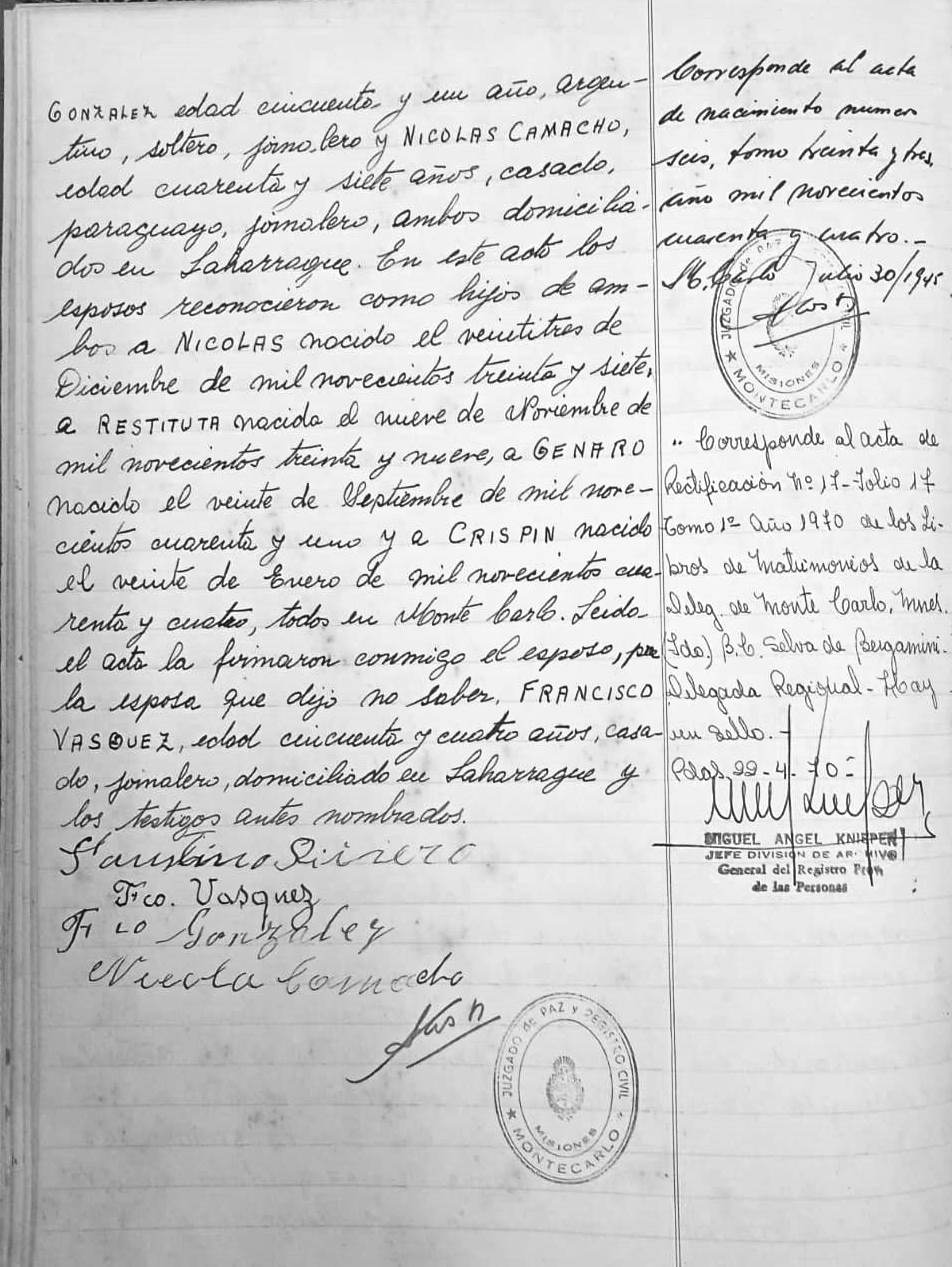 GONZALEZ edad cincuenta y un año, argen-
tino, soltero, jornalero y NICOLAS CAMACHO,
edad cuarenta y siete años, casado,
paraguayo, jornalero, ambos domicilia-
dos en Laharrague. En este acto los
esposos reconocieron como hijos de am-
bos a NICOLAS nacido el veintitres de
Diciembre de mil novecientos treinta y siete,
a RESTITUTA nacida el nueve de Noviembre de
mil novecientos treinta y nueve, a GENARO
nacido el veinte de Septiembre de mil nove-
cientos cuarenta y uno y a CRISPIN nacido
el veinte de Enero de mil novecientos cua-
renta y cuatro, todos en Monte Carlo. Leida
el acta la firmaron conmigo el esposo, por
la esposa que dijo no saber, FRANCISCO
VASQUEZ, edad cincuenta y cuatro años, casa-
do, jornalero, domiciliado en Laharrague y
los testigos antes nombrados.
Faustino
Fco. Vasquez
Fco Gonzalez
Nicola Camacho
JUZGADO de PAZ y REGISTRO CIVIL
MISIONES
★ MONTECARLO ★
Corresponde al acta
de nacimiento numero
seis, tomo treinta y tres,
año mil novecientos
cuarenta y cuatro.-
M. Carlo Julio 30/1945
JUZGADO de PAZ CIVIL
MISIONES
★ MONTECARLO ★
" Corresponde al acta de
Rectificación Nº 17-Folio 17
Tomo 1º Año 1970 de los Li-
bros de Matrimonios de la
Deleg. de Monte Carlo, Mnes.
(Fdo.) B.C. Selva de Bergamini.
Delegada Regional - Hay
un sello.-
Pdas, 22-4-70-
MIGUEL ANGEL KNIEPER
JEFE DIVISION DE ARCHIVO
General del Registro Prov
de las Personas